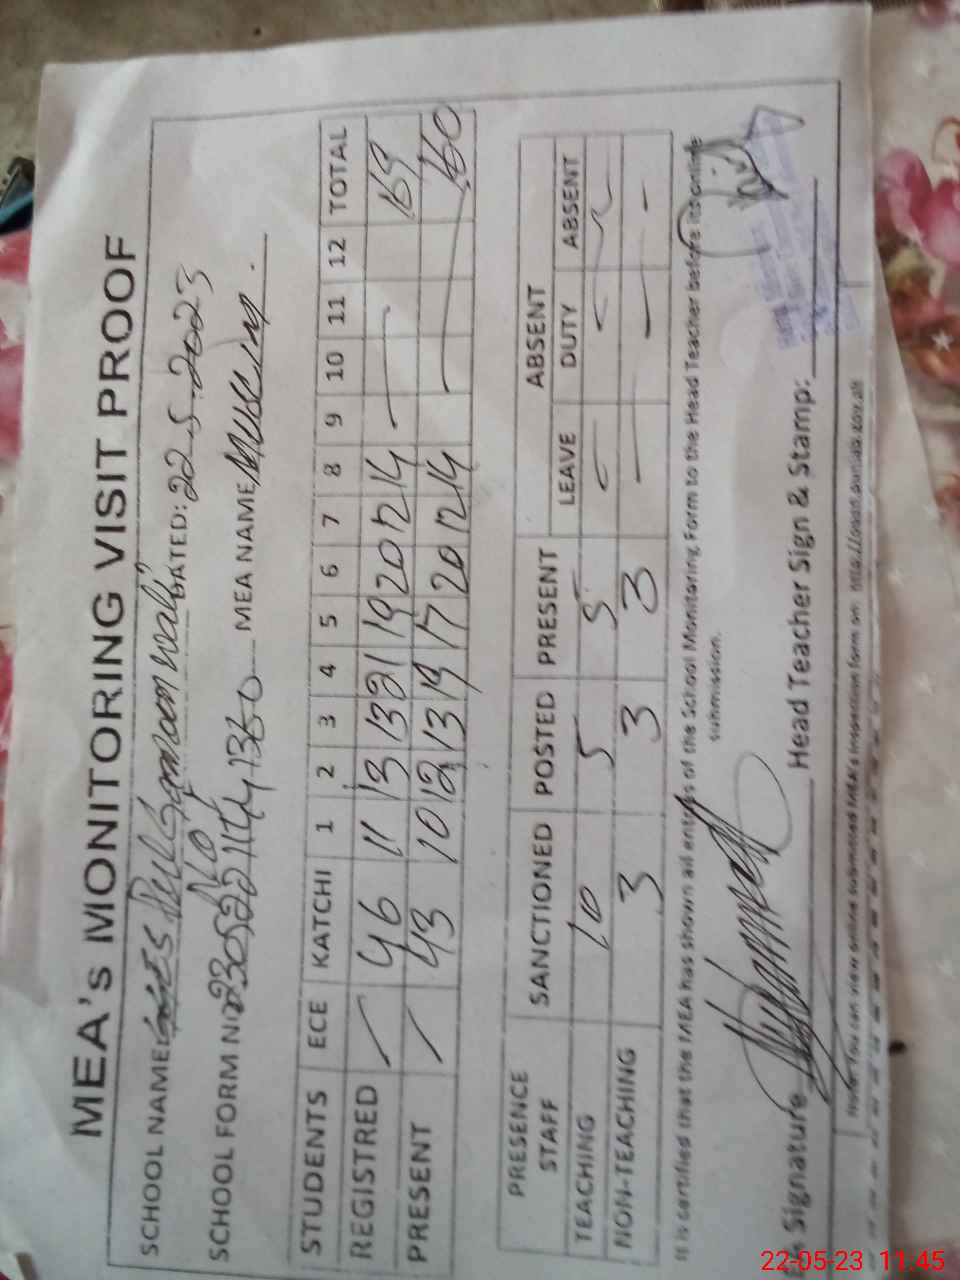 MEA's MONITORING VISIT PROOF
SCHOOL NAME GGES Pul DATED: 22-5-2023
SCHOOL FORM NO MEA NAME
STUDENTS ECE KATCHI 1 2 3 4 5 6 7 8 9 10 11 12 TOTAL
REGISTRED — 46 11 13 13 21 19 20 12 14 — 169
PRESENT — 43 10 12 13 19 17 20 12 14 — 160
PRESENCE STAFF SANCTIONED POSTED PRESENT ABSENT
LEAVE DUTY ABSENT
TEACHING 10 5 5 - - -
NON-TEACHING 3 3 3 - - -
It is certified that the MEA has shown all entries of the School Monitoring Form to the Head Teacher before its online
submission.
Signature Head Teacher Sign & Stamp:
Note: You can view online submitted MEA's inspection form on:
22-05-23 11:45